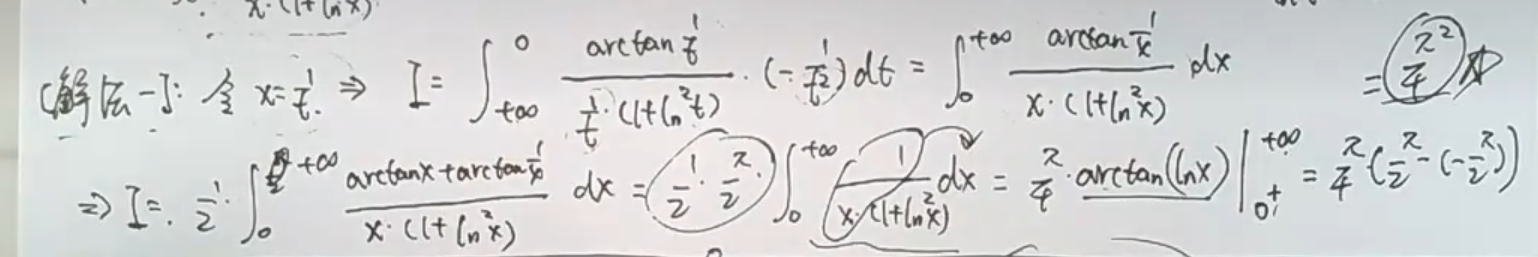 x·(1+ln²x)
[解法一]: 令 x=1/t. ⇒ I= ∫_{+∞}^{0} arctan(1/t) / ((1/t)·(1+ln²t)) · (-1/t²)dt = ∫_{0}^{+∞} arctan(1/x) / (x·(1+ln²x)) dx = π²/4
⇒ I=. 1/2·∫_{0}^{+∞} (arctanx+arctan(1/x)) / (x·(1+ln²x)) dx = 1/2·π/2·∫_{0}^{+∞} 1/(x·(1+ln²x)) dx = π/4·arctan(lnx)|_{0⁺}^{+∞} = π/4(π/2-(-π/2))